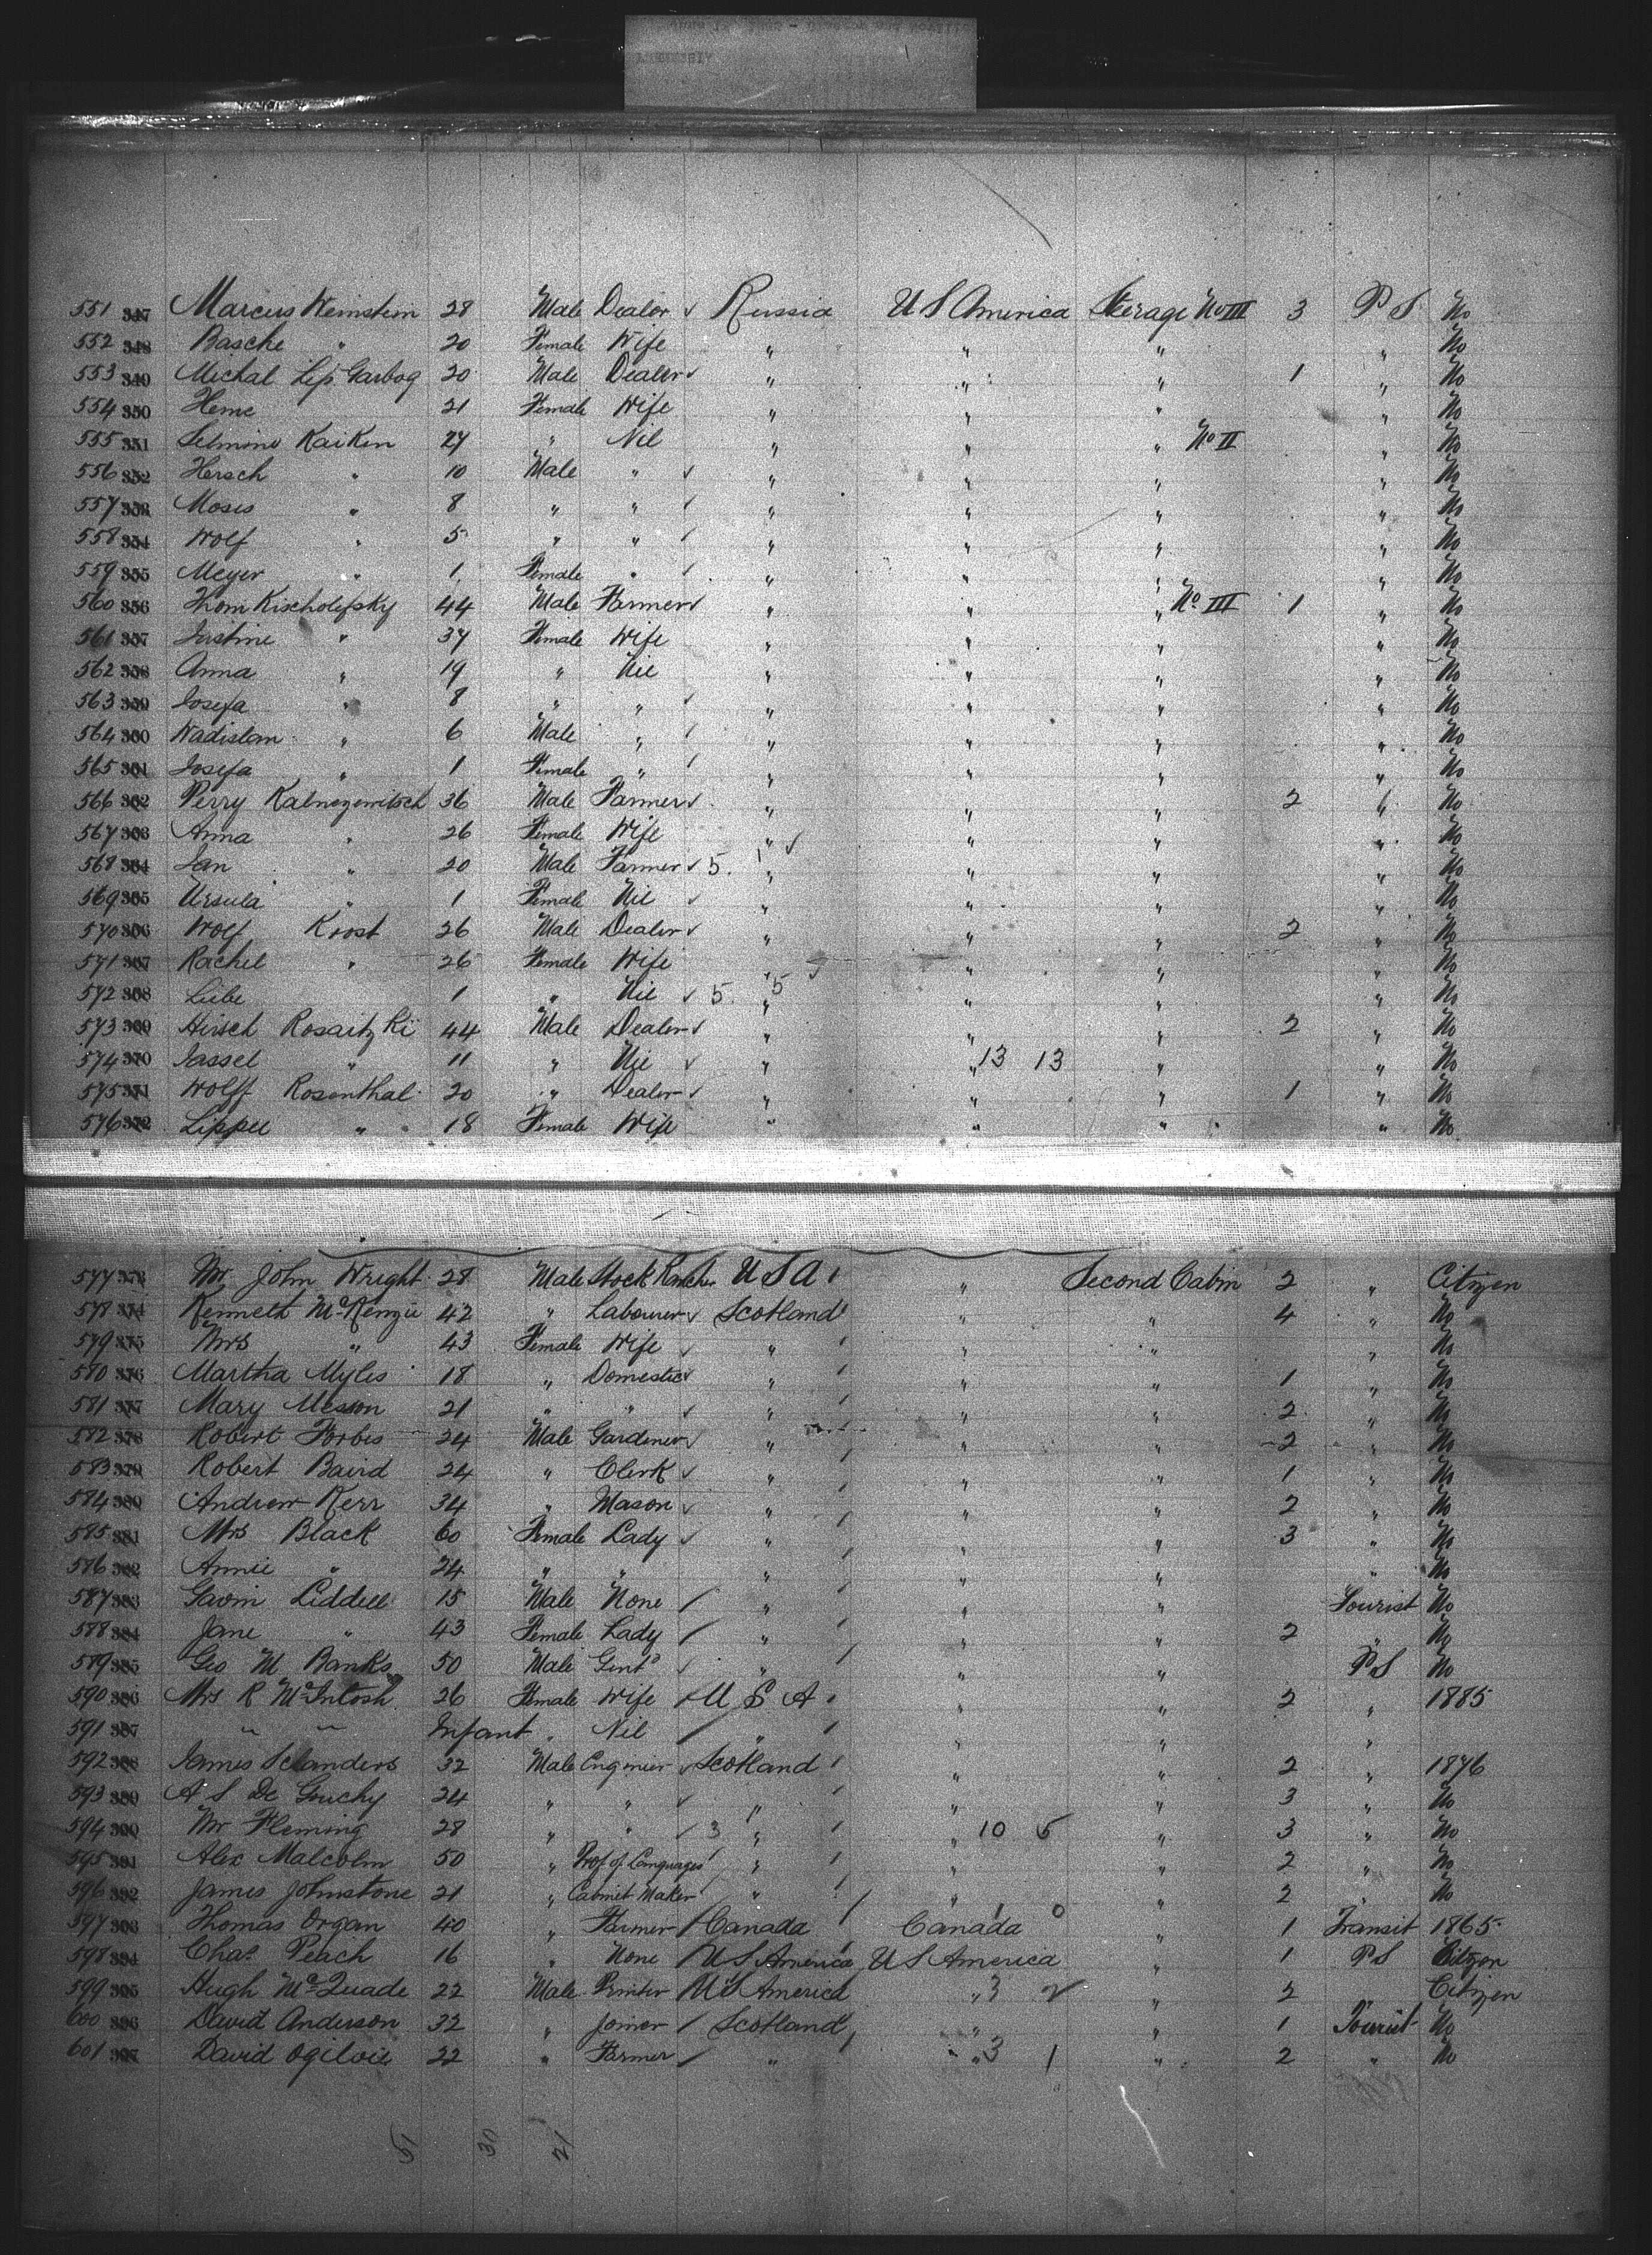 551 347 Marcus Weinstein 28 Male Dealer Russia U S America Steerage No III 3 P S No
552 348 Basche " 20 Female Wife " " " " No
553 349 Michal Lip Garbog 20 Male Dealer " " " 1 " No
554 350 Heme 21 Female Wife " " " " No
555 351 Kaiken 27 " Nil " " " No II " No
556 352 Hersch " 10 Male " " " " " No
557 353 Moses " 8 " " " " " " No
558 354 Wolf " 5 " " " " " " No
559 355 Meyer " 1 Female " " " " " No
560 356 Thom Kischolefsky 44 Male Farmer " " " No III 1 " No
561 357 Justine " 37 Female Wife " " " " No
562 358 Anna " 19 " Nil " " " " No
563 359 Josefa " 8 " " " " " " No
564 360 Wadislam " 6 Male " " " " " No
565 361 Josefa " 1 Female " " " " " No
566 362 Perry 36 Male Farmer " " " 2 " No
567 363 Anna " 26 Female Wife " " " " No
568 364 Jan " 20 Male Farmer 5 1 " " " " No
569 365 Ursula " 1 Female Nil " " " " No
570 366 Wolf Krost 26 Male Dealer " " " 2 " No
571 367 Rachel " 26 Female Wife " " " " No
572 368 Liebe 1 " Nil 5 5 " " " " No
573 369 Hirsch Rosaitzki 44 Male Dealer " " " 2 " No
574 370 Jassel " 11 " Nil " " 13 13 " " No
575 371 Wolff Rosenthal 20 " Dealer " " " 1 " No
576 372 Lippee " 18 Female Wife " " " " No
577 373 Mr John Wright 28 Male Stock Rancher U S A " Second Cabin 2 " Citizen
578 374 Kenneth McKenzie 42 " Labourer Scotland " " 4 " No
579 375 Mrs " 43 Female Wife " " " " No
580 376 Martha Myles 18 " Domestic " " " 1 " No
581 377 Mary Messon 21 " " " " " 2 " No
582 378 Robert Forbes 24 Male Gardener " " " 2 " No
583 379 Robert Baird 24 " Clerk " " " 1 " No
584 380 Andrew Kerr 34 " Mason " " " 2 " No
585 381 Mrs Black 60 Female Lady " " " 3 " No
586 382 Annie " 24 " " " " " " No
587 383 Gavin Liddell 15 Male None " " " Tourist No
588 384 Jane " 43 Female Lady " " " 2 " No
589 385 Geo M Banks 50 Male Gent " " " P S No
590 386 Mrs R McIntosh 26 Female Wife U S A " " 2 " 1885
591 387 " " Infant " Nil " " " "
592 388 James Sclanders 32 Male Engineer Scotland " " 2 " 1876
593 389 A S De Gruchy 24 " " " " " 3 " No
594 390 Mr Fleming 28 " " 3 1 " " 10 5 " 3 " No
595 391 Alex Malcolm 50 " Prof of Languages " " " 2 " No
596 392 James Johnstone 21 " Cabinet Maker " " " 2 " No
597 393 Thomas Organ 40 " Farmer Canada Canada 1 0 " 1 Transit 1865
598 394 Chas. Peach 16 " None U S America U S America " 1 P S Citizen
599 395 Hugh McQuade 22 Male Printer U S America " 3 2 " 2 " Citizen
600 396 David Anderson 32 " Joiner Scotland " " 1 Tourist No
601 397 David Ogilvie 22 " Farmer " " 3 1 " 2 " No
51 30 21